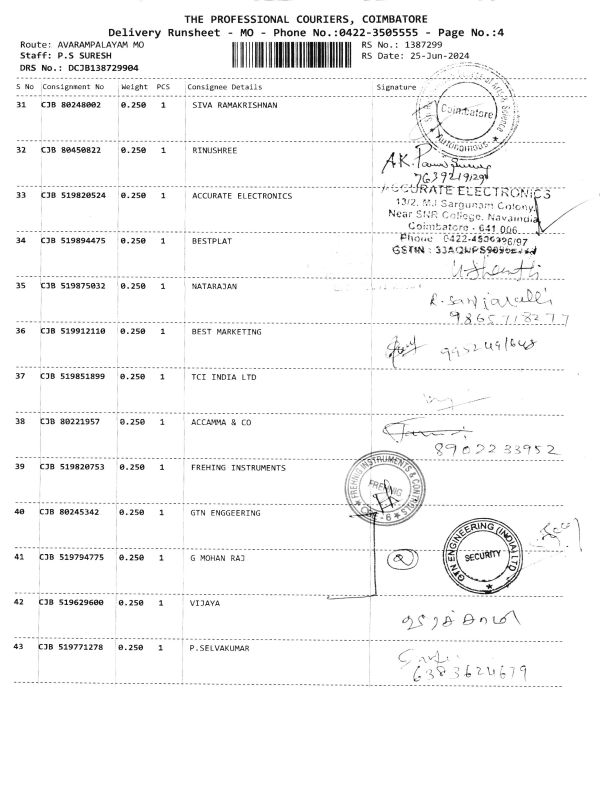 THE PROFESSIONAL COURIERS, COIMBATORE
Delivery Runsheet - MO - Phone No.:0422-3505555 - Page No.:4
Route: AVARAMPALAYAM MO RS No.: 1387299
Staff: P.S SURESH RS Date: 25-Jun-2024
DRS No.: DCJB138729904
S No Consignment No Weight PCS Consignee Details Signature
31 CJB 80248002 0.250 1 SIVA RAMAKRISHNAN
Coimbatore
Autonomous
32 CJB 80450822 0.250 1 RINUSHREE
A.K.
33 CJB 519820524 0.250 1 ACCURATE ELECTRONICS
ACCURATE ELECTRONICS
13/2, MJ Sargunam Colony,
Near SNR College, Navaindia
Coimbatore - 641 006
34 CJB 519894475 0.250 1 BESTPLAT
Phone
GSTIN :
35 CJB 519875032 0.250 1 NATARAJAN
9865718277
36 CJB 519912110 0.250 1 BEST MARKETING
37 CJB 519851899 0.250 1 TCI INDIA LTD
38 CJB 80221957 0.250 1 ACCAMMA & CO
8902233952
39 CJB 519820753 0.250 1 FREHING INSTRUMENTS
FREHNIG INSTRUMENTS & CONTROLS
FREHNIG
40 CJB 80245342 0.250 1 GTN ENGGEERING
GTN ENGINEERING (INDIA) LTD
SECURITY
41 CJB 519794775 0.250 1 G MOHAN RAJ
2
42 CJB 519629600 0.250 1 VIJAYA
43 CJB 519771278 0.250 1 P.SELVAKUMAR
6383624679